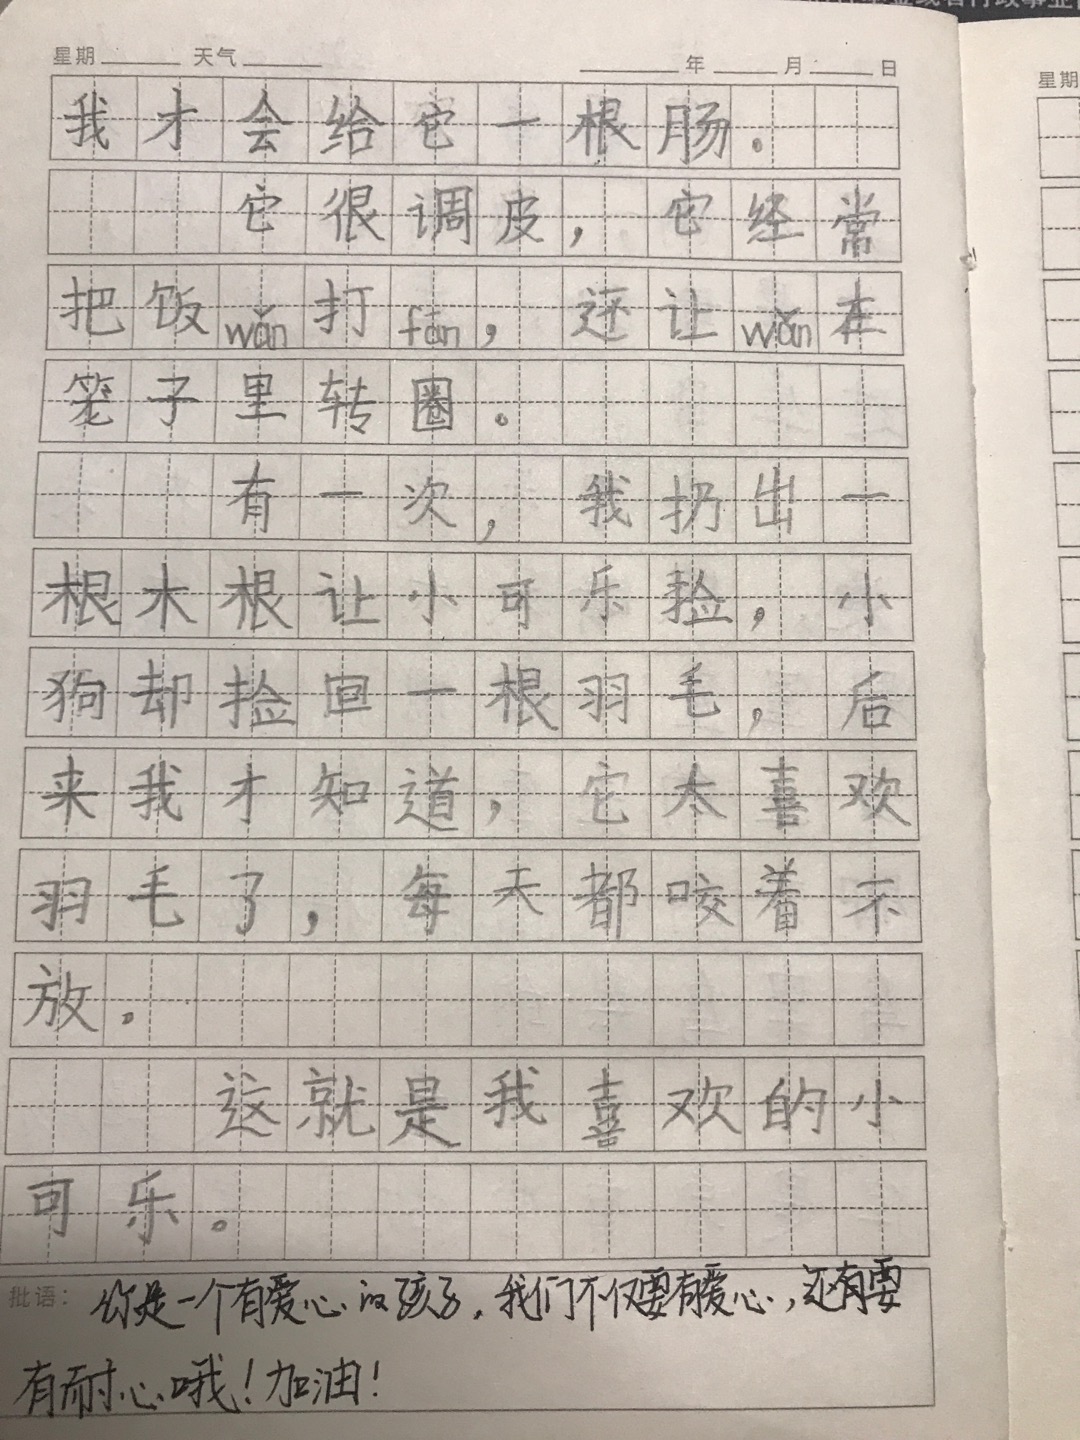 星期 天气 年 月 日
我才会给它一根肠。
它很调皮，它经常
把饭wǎn打fān，还让wǎn在
笼子里转圈。
有一次，我扔出一
根木根让小可乐捡，小
狗却捡回一根羽毛，后
来我才知道，它太喜欢
羽毛了，每天都咬着不
放。
这就是我喜欢的小
可乐。
批语：你是一个有爱心的孩子，我们不仅要有爱心，还有要
有耐心哦！加油！
星期